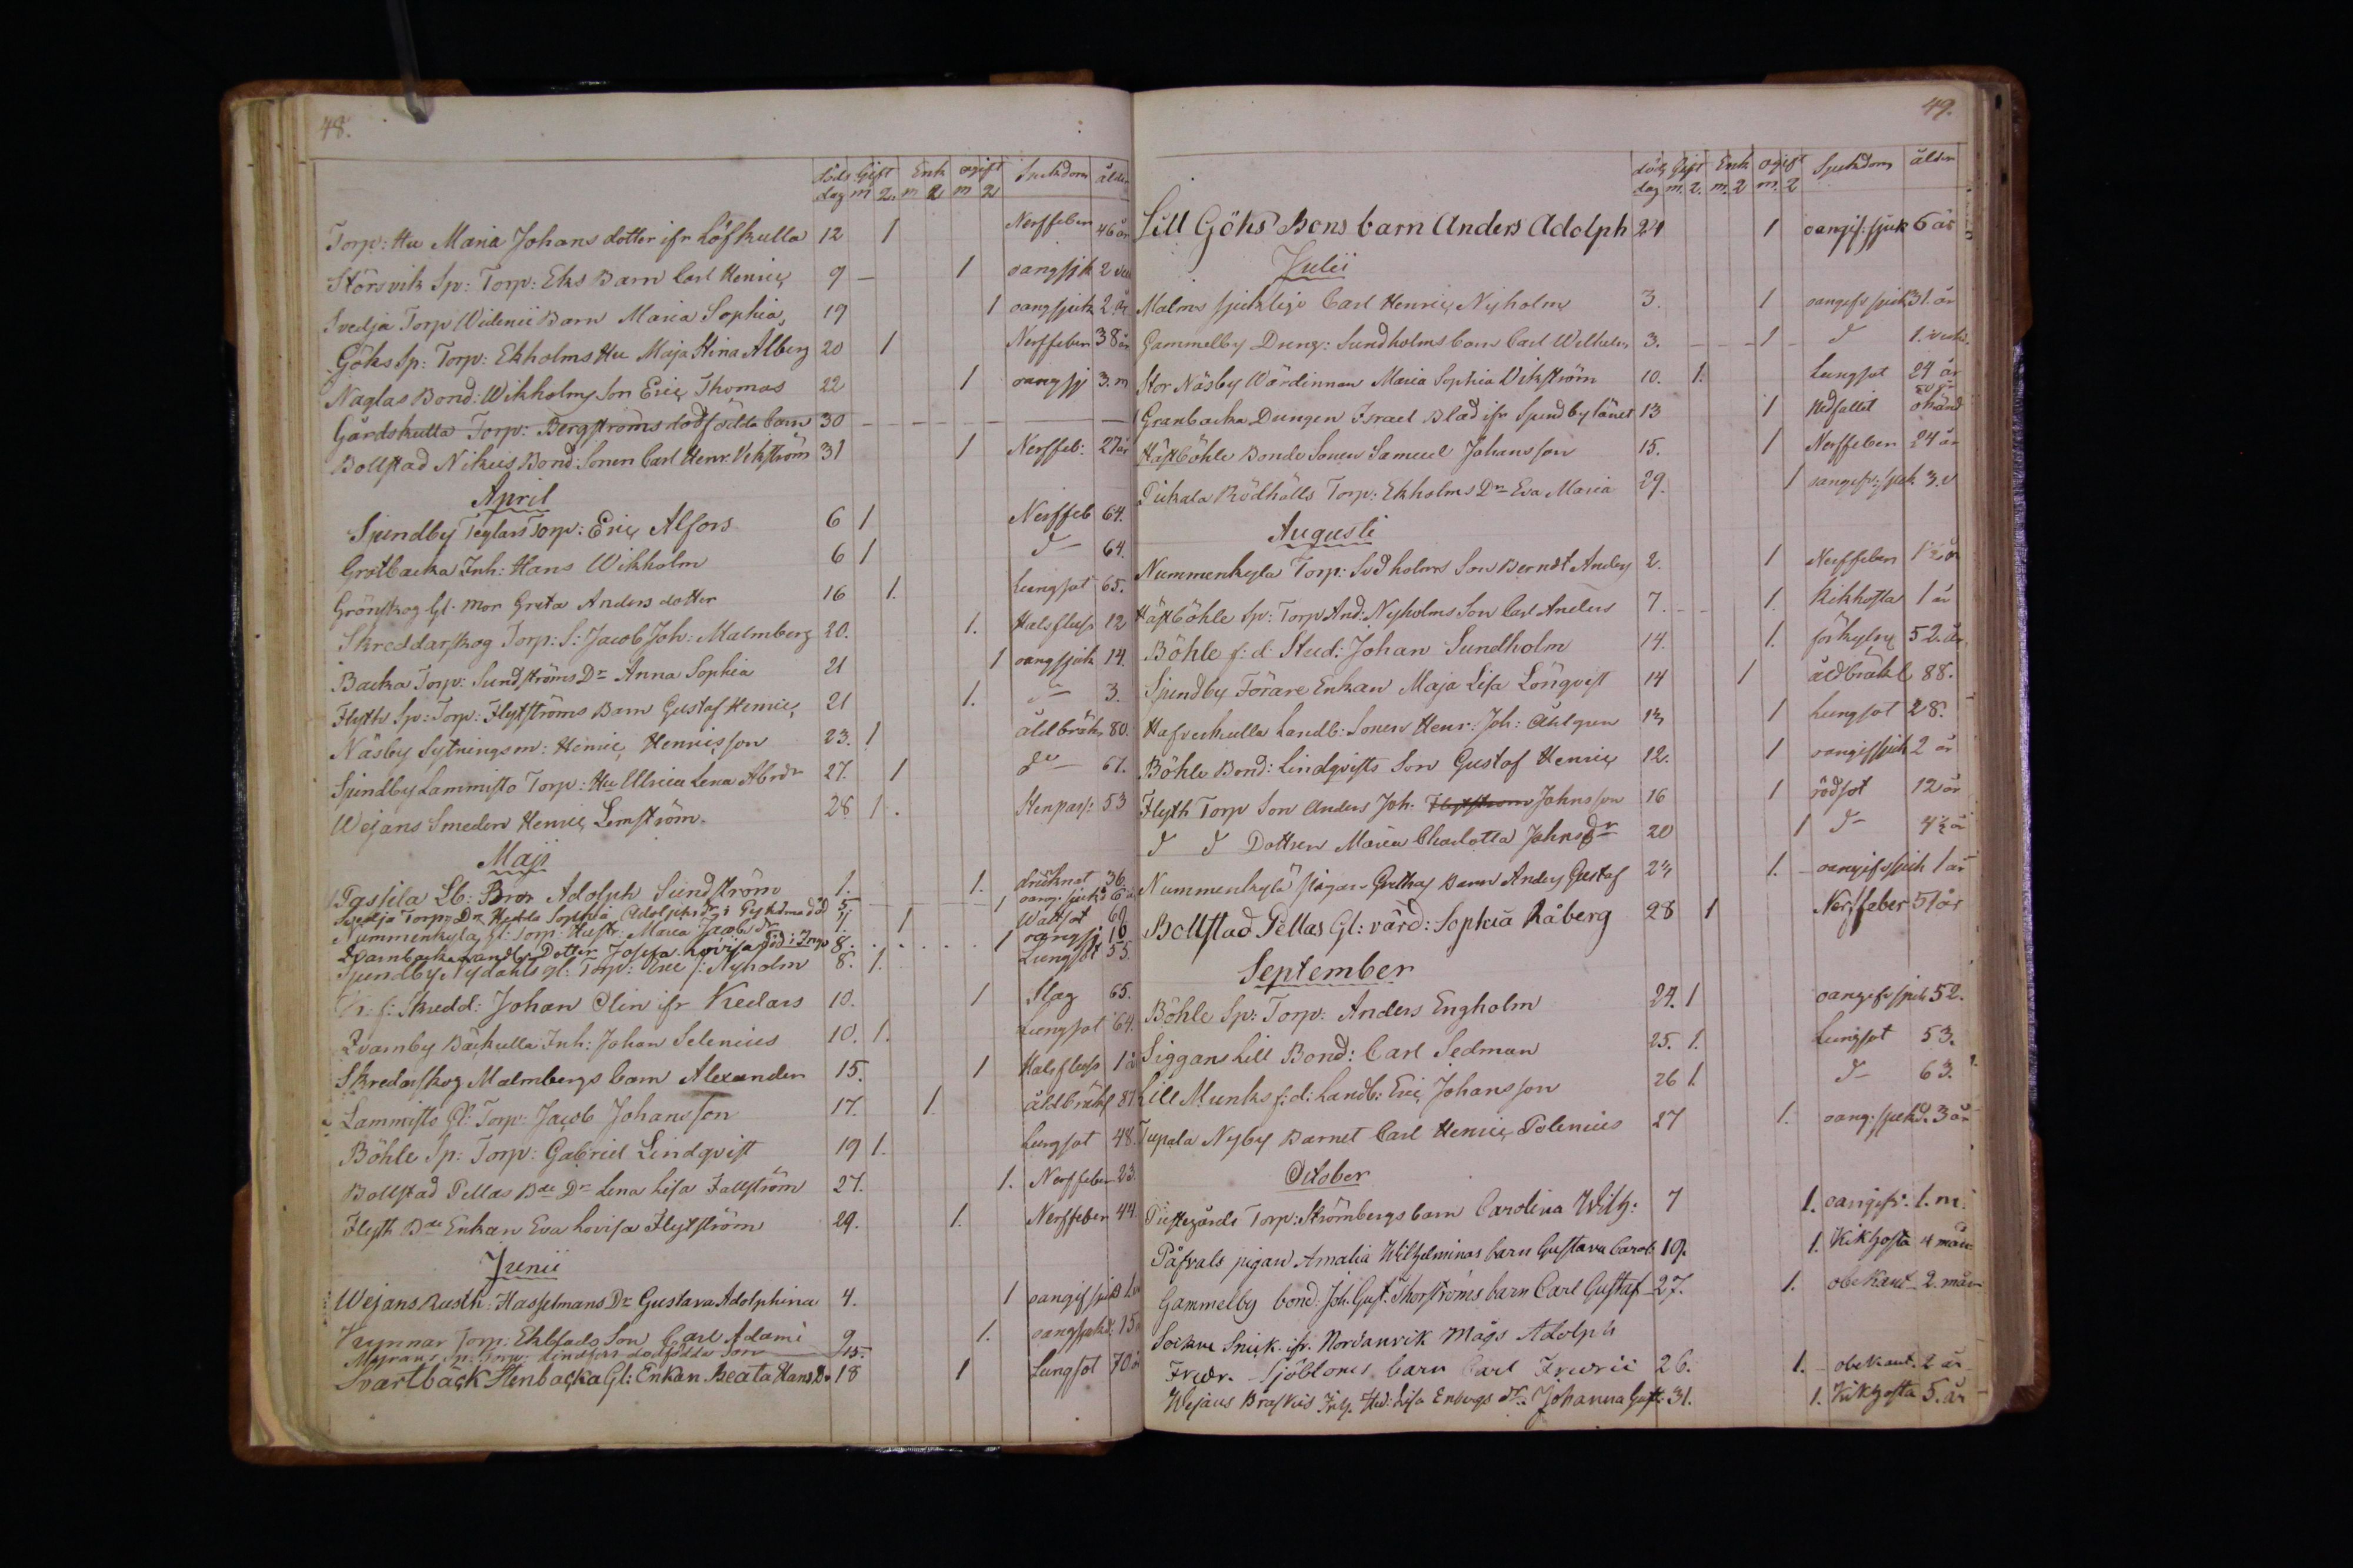 48.
Döds Gift Enk ogift Sjukdom ålder
dag m 2. m 2 m 2
Torp: Hu Maria Johans dotter ifr Löfkulla 12 1 Nerffeber 46 år
Störsvik Sp: Torp: Eks Barn Carl Henric 9 – 1 oangsjk 2 veck
Svedja Torp Widenii Barn Maria Sophia 19 1 oangsjuk 2. år
Göks Sp: Torp: Ekholms Hu Maja Stina Alberg 20 1 Nerffeber 38 år
Naglas Bond: Wikholms Son Eric Thomas 22 1 oangsj 3. m
Gårdskulla Torp: Bergströms dödfödda barn 30 – – – – – –
Bollstad Nikus Bond Sonen Carl Henr. Vikström 31 1 Nerffeb: 27 år
April
Sjundby Teglars Torp: Eric Alfors 6 1 Nerffeb 64.
Grotbacka Inh: Hans Wikholm 6 1 d– 64.
Grönskog Gl. mor Greta Anders dotter 16 1. Lungsot 65.
Skreddarskog Torp: S: Jacob Joh: Malmberg 20. 1. Halsfluss 12
Backa Torp: Sundströms Dr Anna Sophia 21 1 oangsjuk 14.
Flyth Sp: Torp: Flytströms Barn Gustaf Henric 21 1. d– 3.
Näsby Sytningsm: Henric Henricsson 23. 1 åldbräk 80.
Sjundby Lammisto Torp: Hu Ulrica Lena Abrdr 27. 1 do– 61.
Wejans Smeden Henric Lemström. 28 1. Stenpass: 53
Maji
Passila Lb: Bror Adolph Sundström 1. 1. drucknat 36
Svedja Torp: Dr Hedda Sophia Adolphsdr i död 5 – – – – 1 oang. sjukd 6 å
Nummenkyla Gl: Torp: Hustr: Maria Jacobsdr 7 1 Wattsot 69
Qvarnbacka Landb: Dotter Josefa Lovisa död i Ingo 8. . . . . 1 oangsj 16
Sjundby Nydahls gl: Torp: Eric J: Nyholm 8. 1. Lungsot 55.
f: Skredd: Johan Olin ifr Kedars 10. 1 Slag 65.
Qvarnby Bäckulla Inh: Johan Selenius 10. 1. Lungsot 64.
Skredarskog Malmbergs barn Alexander 15. 1 Halsfluss 1 år
Lammisto Gl: Torp: Jacob Johansson 17. 1. åldbräkl 87
Böhle Sp: Torp: Gabriel Lindqvist 19 1. Lungsot 48.
Bollstad Pellas Bde Dr Lena Lisa Fallström 27. 1. Nerffeber 23.
Flyth Bde Enkan Eva Lovisa Flytström 29. 1. Nerffeber 44.
Junii
Wejans Rusth: Hasselmans Dr Gustava Adolphina 4. 1 oangifsjuk
Torp: Ekblads Son Carl Adami 9 1. oangsjukd: 15
Myrans Sp: Torp: dödfödda Son 15.
Svartbäck Stenbacka Gl: Enkan Beata Hans Dr 18 1 Lungsot 70 å
49.
döds Gift Enk ogift Sjukdom ålder
dag m. 2. m. 2 m. 2
Lill Göks Bons barn Anders Adolph 24 1 oangif: sjuk 6 år
Julii
Malms sjuklige Carl Henric Nyholm 3. 1 oangifv sjuk 31. år
Gammelby Dreng: Sundholms barn Carl Wilhelm 3. – – – 1 – d 1. veck.
Stor Näsby Wärdinnan Maria Sophia Vikström 10. 1. Lungsot 24 år
Granbacka Drengen Israel Blad ifr Sjundby länet 13 1 Nedfallet okänd
Häxböhle Bonde Sonen Samuel Johansson 15. 1 Nerffeber 24 år
Pickala Rödhälls Torp: Ekholms Dr Eva Maria 29. 1 oangifv: sjuk 3. v
Augusti
Nummenkyla Torp: Sidholms Son Berndt Anders 2. 1 Nerffeber 1½ år
Häxböhle Sp: Torp And: Nyholms Son Carl Anders 7. – – 1. Kikhosta 1 år
Böhle f: d: Stud: Johan Sundholm 14. 1. förkyln 52. år
Sjundby Förare Enkan Maja Lisa Lönqvist 14 1 åldbräkl 88.
Hafverkulla Landb: Sonen Henr: Joh: Åhlgren 1 Lungsot 28.
Böhle Bond: Lindqvists Son Gustaf Henric 12. 1 oangifsjuk 2 år
Flyth Torp Son Anders Joh. Flytström Johnsson 16 1 rödsot 12 år
d d Dottren Maria Charlotta Johnsdr 20 1 d– 4½ år
Nummenkylä pigan Grethas Barn Anders Gustaf 1. oangifvsjuk 1 år
Bollstad Pellas Gl: värd: Sophia Råberg 28 1 Nerffeber 51 år
September
Böhle Sp: Torp: Anders Engholm 24. 1 oangifv sjuk 52.
Siggans Lill Bond: Carl Sedman 25. 1. Lungsot 53.
Lill Munks f: d: Landb: Eric Johansson 26 1. d– 63.
Tupala Nyby Barnet Carl Henric Polenius 27 1. oang: sjukd. 3 år
October
Prestegårds Torp: Strömbergs barn Carolina Wilh: 7 1. oangifv: 1. m.
Påfvals pigan Amalia Wilhelminas barn Gustava Carol: 19. 1. Kikhosta 4 mån
Gammelby bond. Joh: Gust: Thorströms barn Carl Gustaf 27. 1. obekant 2. mån
Sockne Snick. ifr. Nordanvik Mågs Adolph
Fredr. Sjöbloms barn Carl Fredric 26. 1. – obekant. 2 år
Wejans Braskis Inh. Hed: Lisa Enbergs dr. Johanna Gust: 31. 1. Kikhosta 5. år